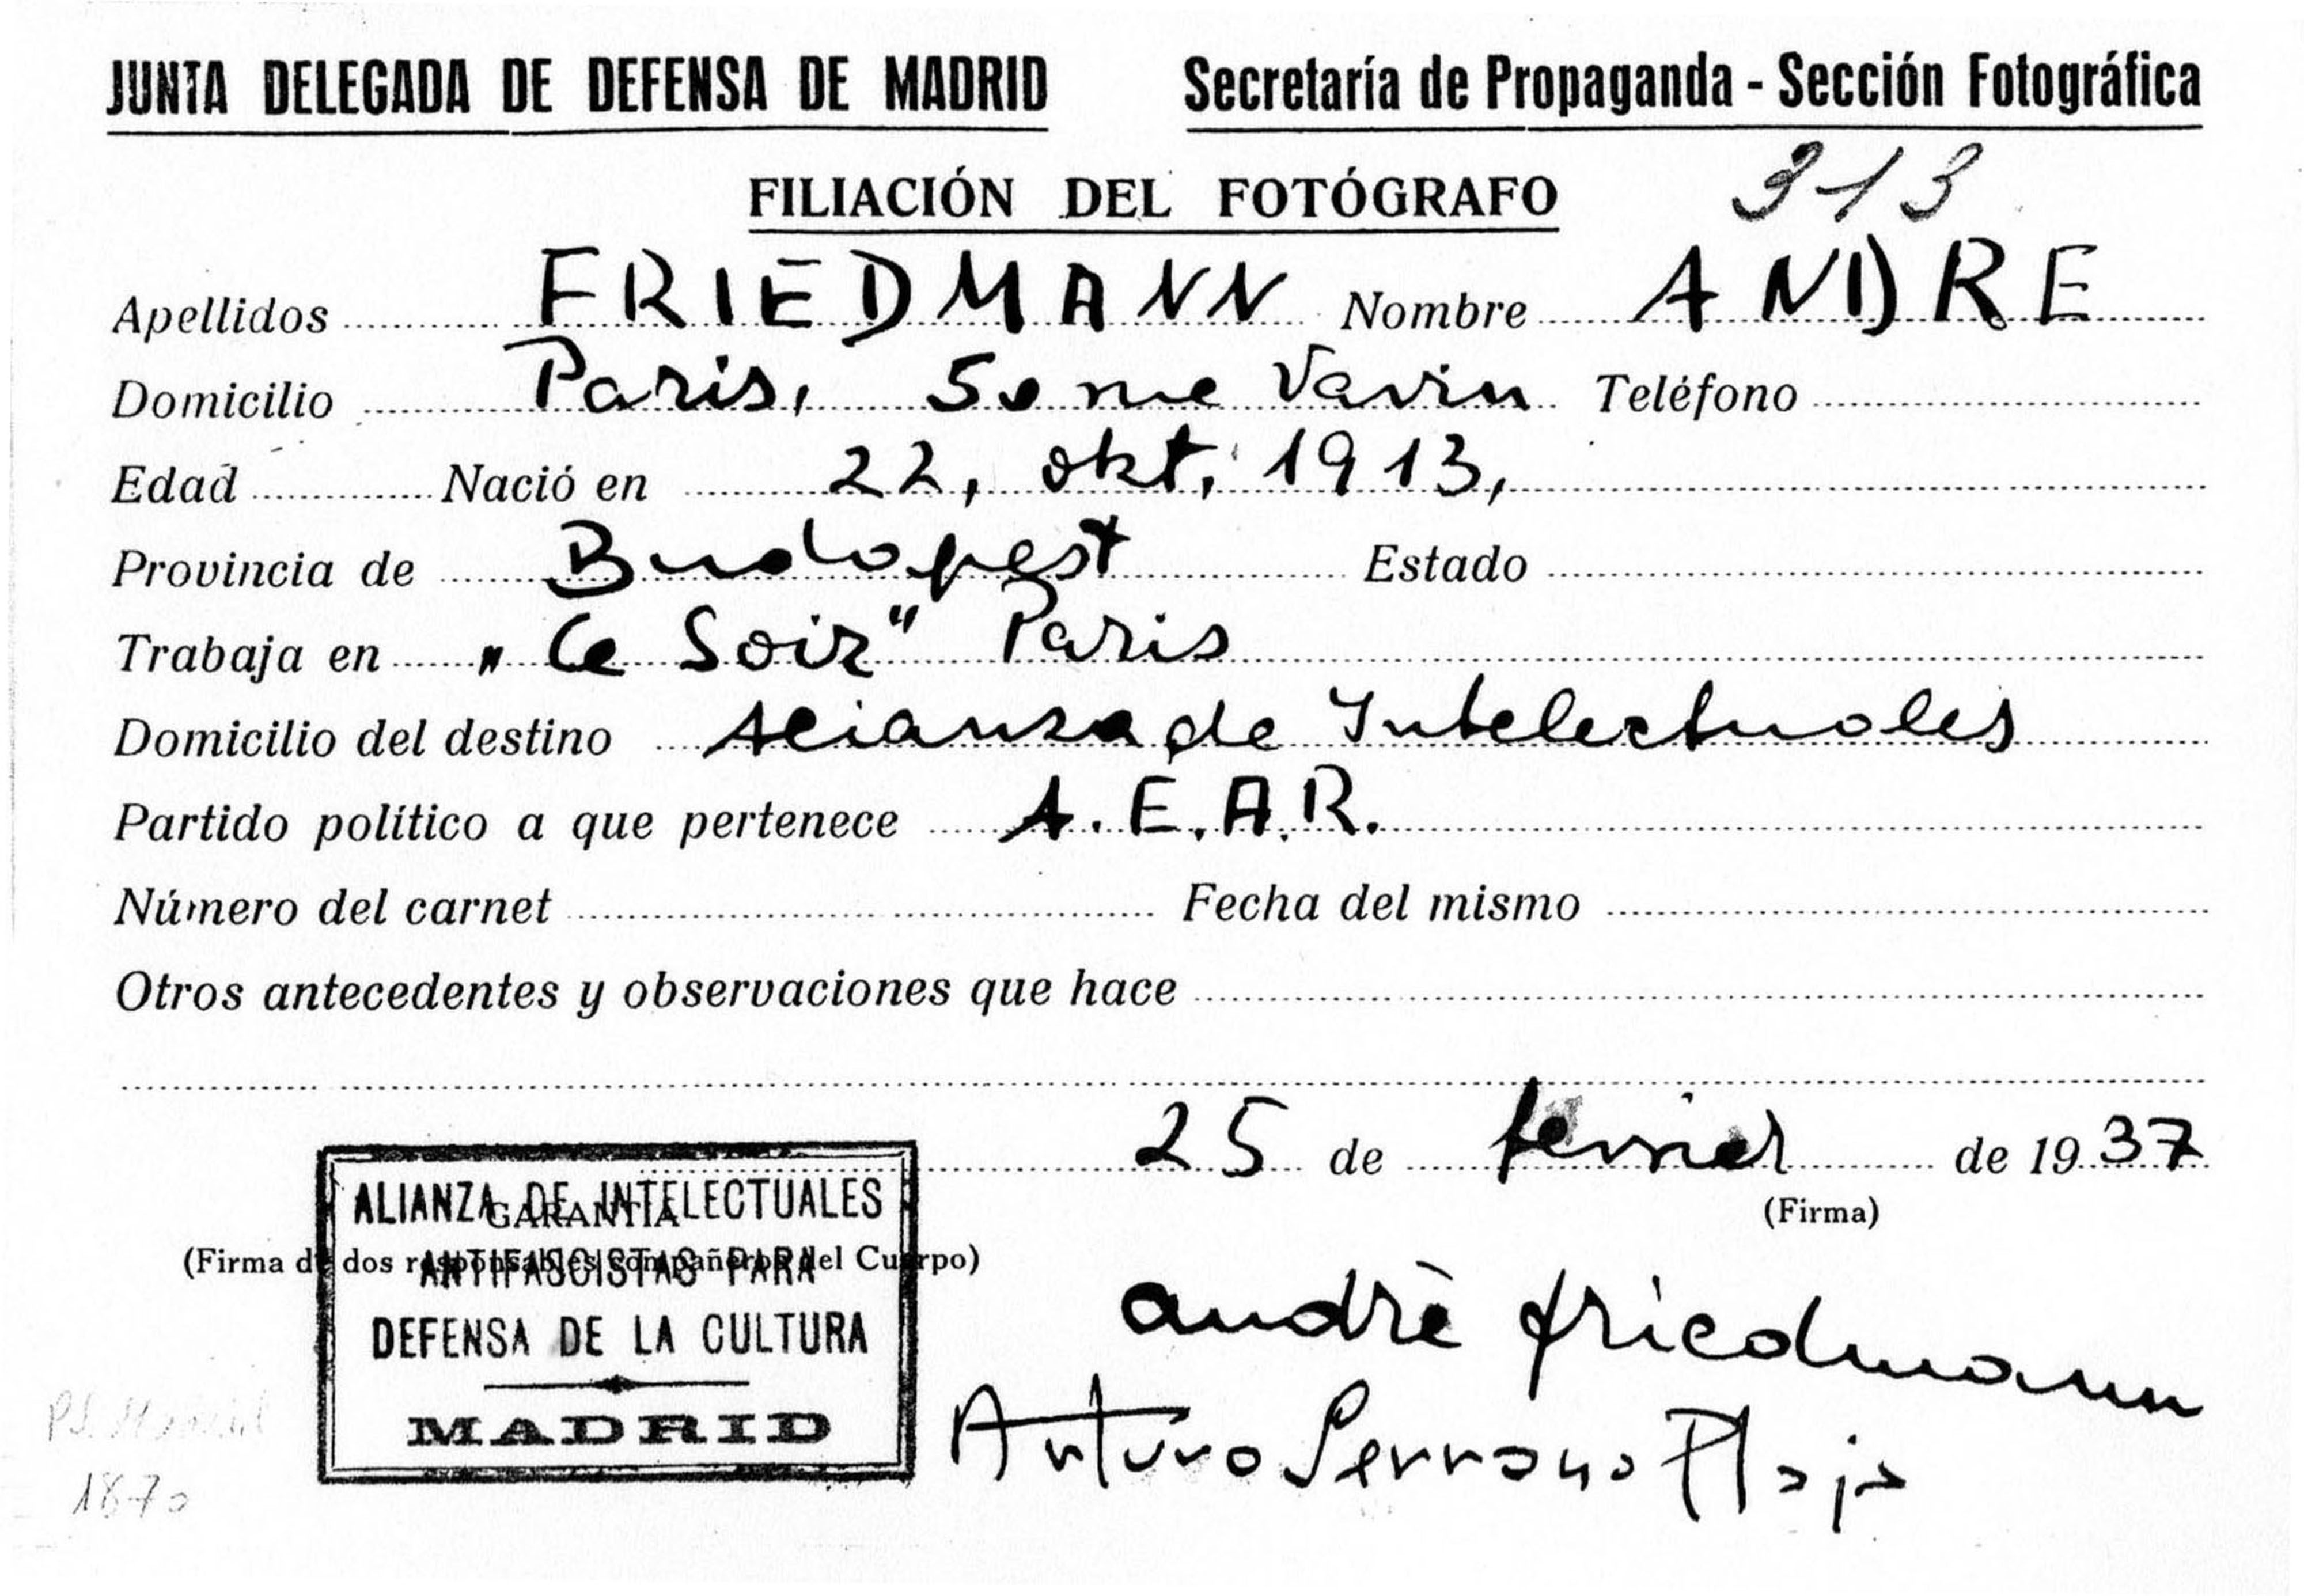 JUNTA DELEGADA DE DEFENSA DE MADRID Secretaría de Propaganda - Sección Fotográfica
FILIACIÓN DEL FOTÓGRAFO 313
Apellidos FRIEDMANN Nombre ANDRE
Domicilio Paris, Vavin Teléfono
Edad Nació en 22, okt, 1913,
Provincia de Budapest Estado
Trabaja en „Ce Soir" Paris
Domicilio del destino Aliansa de Intelectuales
Partido político a que pertenece A.E.A.R.
Número del carnet Fecha del mismo
Otros antecedentes y observaciones que hace
25 de de 1937
(Firma)
GARANTIA
(Firma de dos responsables compañeros del Cuerpo)
ALIANZA DE INTELECTUALES
ANTIFASCISTAS PARA
DEFENSA DE LA CULTURA
MADRID
andrè friedmann
Arturo Serrano Plaja
1870